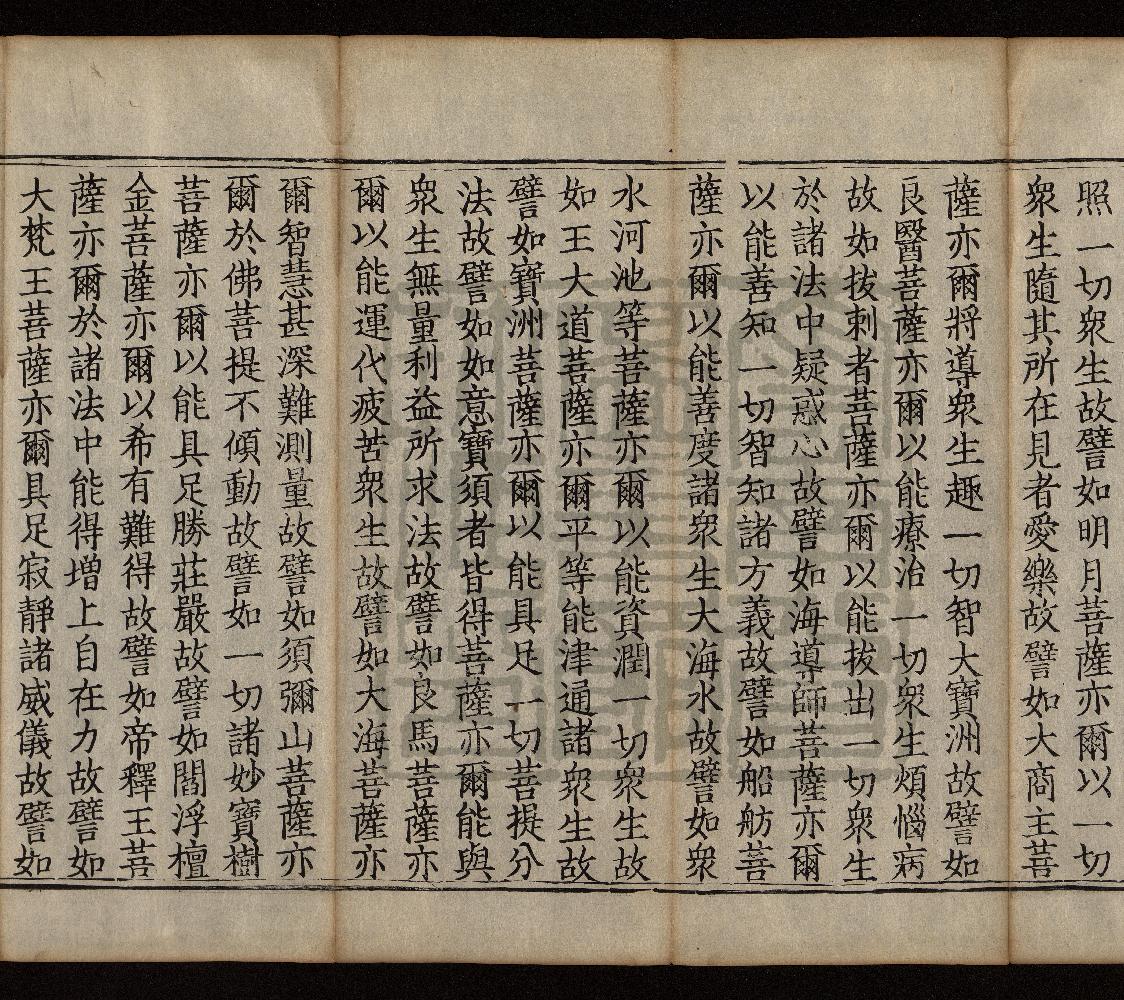 照一切衆生故譬如明月菩薩亦爾以一切
衆生隨其所在見者愛樂故譬如大商主菩
薩亦爾將導衆生趣一切智大寶洲故譬如
良醫菩薩亦爾以能療治一切衆生煩惱病
故如拔刺者菩薩亦爾以能拔出一切衆生
於諸法中疑惑心故譬如海導師菩薩亦爾
以能善知一切智知諸方義故譬如船舫菩
薩亦爾以能善度諸衆生大海水故譬如衆
水河池等菩薩亦爾以能資潤一切衆生故
如王大道菩薩亦爾平等能津通諸衆生故
譬如寶洲菩薩亦爾以能具足一切菩提分
法故譬如如意寶須者皆得菩薩亦爾能與
衆生無量利益所求法故譬如良馬菩薩亦
爾以能運代疲苦衆生故譬如大海菩薩亦
爾智慧甚深難測量故譬如須彌山菩薩亦
爾於佛菩提不傾動故譬如一切諸妙寶樹
菩薩亦爾以能具足勝莊嚴故譬如閻浮檀
金菩薩亦爾以希有難得故譬如帝釋王菩
薩亦爾於諸法中能得增上自在力故譬如
大梵王菩薩亦爾具足寂靜諸威儀故譬如